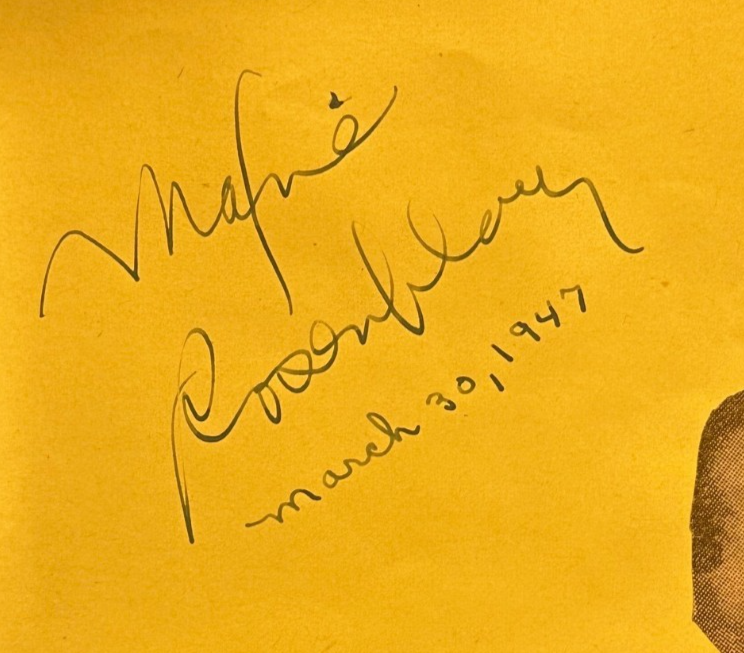 Maxie
Rosenbloom
March 30, 1947